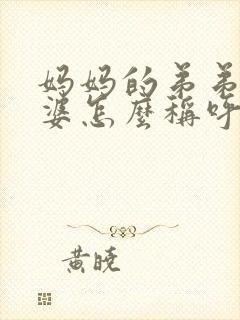 妈妈的弟弟
婆怎麼稱呼
黄曉